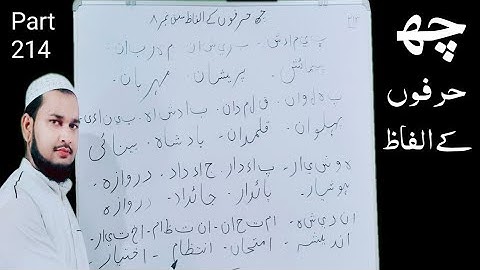 Part
214
چھ
حرفوں
کے الفاظ
چھ حرفوں کے الفاظ سبق نمبر ۸
۲۱۴
پ ی م ا ئ ش ۔ پ ر ی ش ا ن ۔ م ہ ر ب ا ن
پیمائش ۔ پریشان ۔ مہربان
پ ہ ل و ا ن ۔ ق ل م د ا ن ۔ ب ا د ش ا ہ ۔ ب ی ن ا ئ ی
پہلوان ۔ قلمدان ۔ بادشاہ ۔ بینائی
ہ و ش ی ا ر ۔ پ ا ئ د ا ر ۔ ج ا ئ د ا د ۔ د ر و ا ز ہ
ہوشیار ۔ پائدار ۔ جائداد ۔ دروازہ
ا ن د ی ش ہ ۔ ا م ت ح ا ن ۔ ا ن ت ظ ا م ۔ ا خ ت ی ا ر
اندیشہ ۔ امتحان ۔ انتظام ۔ اختیار